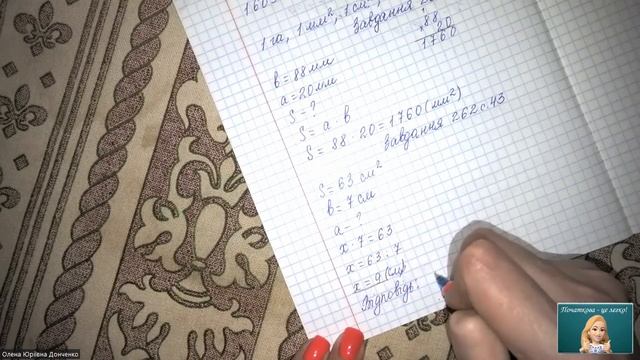 1 га, 1 мм², 1 см²,
Завдання
88
20
1760
в = 88 мм
a = 20 мм
S = ?
S = a · в
S = 88 · 20 = 1760 (мм²)
Завдання 262 с. 43
S = 63 см²
в = 7 см
a - ?
x · 7 = 63
x = 63 : 7
x = 9 (см)
Відповідь:
Початкова - це легко!
Олена Юріївна Донченко